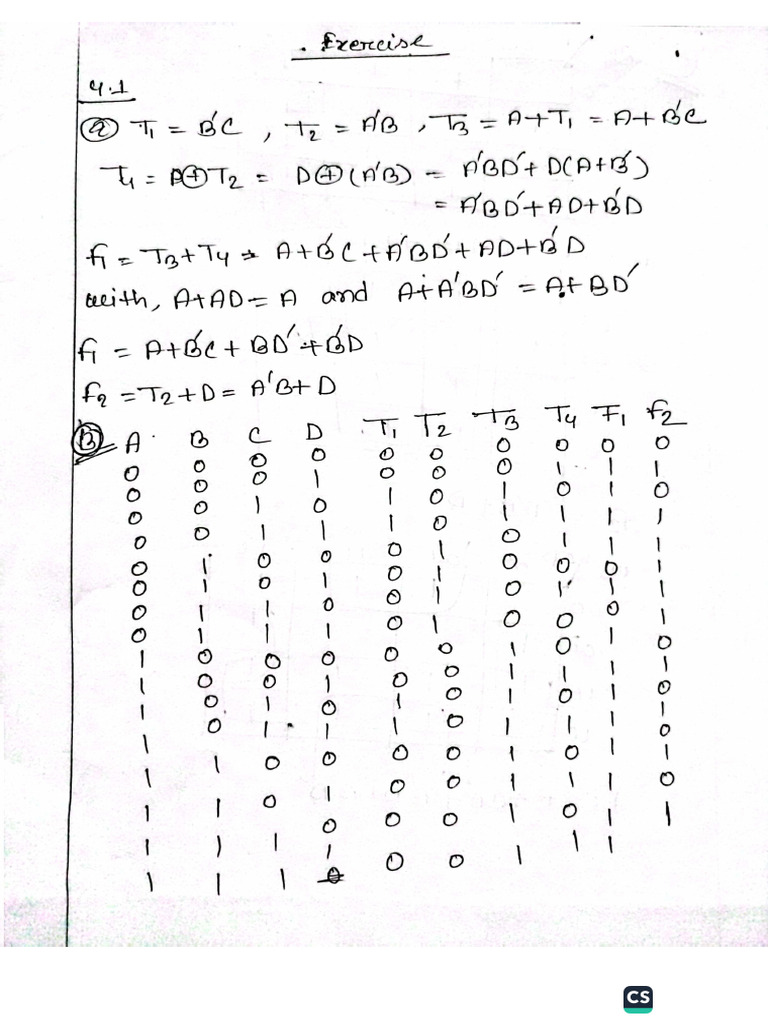 Exercise
4.1
(a) T₁ = B'C , T₂ = A'B , T₃ = A+T₁ = A+B'C
T₄ = D⊕T₂ = D⊕(A'B) = A'BD'+D(A+B')
= A'BD'+AD+B'D
f₁ = T₃+T₄ = A+B'C+A'BD'+AD+B'D
with, A+AD=A and A+A'BD' = A+BD'
f₁ = A+B'C+BD'+B'D
f₂ = T₂+D = A'B+D
(B) A B C D T₁ T₂ T₃ T₄ F₁ f₂
0 0 0 0 0 0 0 0 0 0
0 0 0 1 0 0 0 1 1 1
0 0 1 0 1 0 1 0 1 0
0 0 1 1 1 0 1 1 1 1
0 1 0 0 0 1 0 1 1 1
0 1 0 1 0 1 0 0 0 1
0 1 1 0 0 1 0 1 1 1
0 1 1 1 0 1 0 0 0 1
1 0 0 0 0 0 1 0 1 0
1 0 0 1 0 0 1 1 1 1
1 0 1 0 1 0 1 0 1 0
1 0 1 1 1 0 1 1 1 1
1 1 0 0 0 0 1 0 1 0
1 1 0 1 0 0 1 1 1 1
1 1 1 0 0 0 1 0 1 0
1 1 1 1 0 0 1 1 1 1
CS